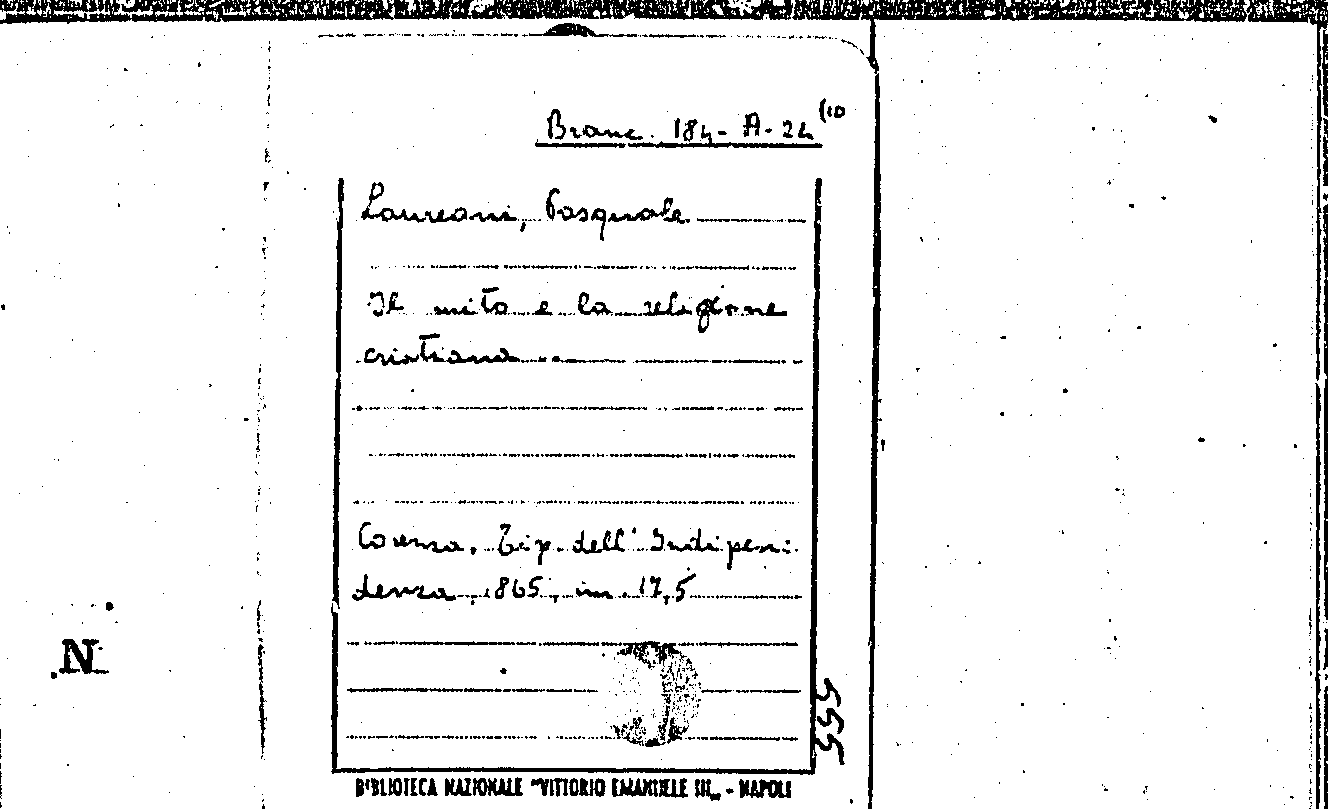 Branc. 184-A-24 (10
Laureani, Pasquale
Il mito e la religione
cristiana ...
Cosenza, Tip. dell' Indipen:
denza, 1865, in. 17,5
N
555
BIBLIOTECA NAZIONALE "VITTORIO EMANUELE III„ - NAPOLI